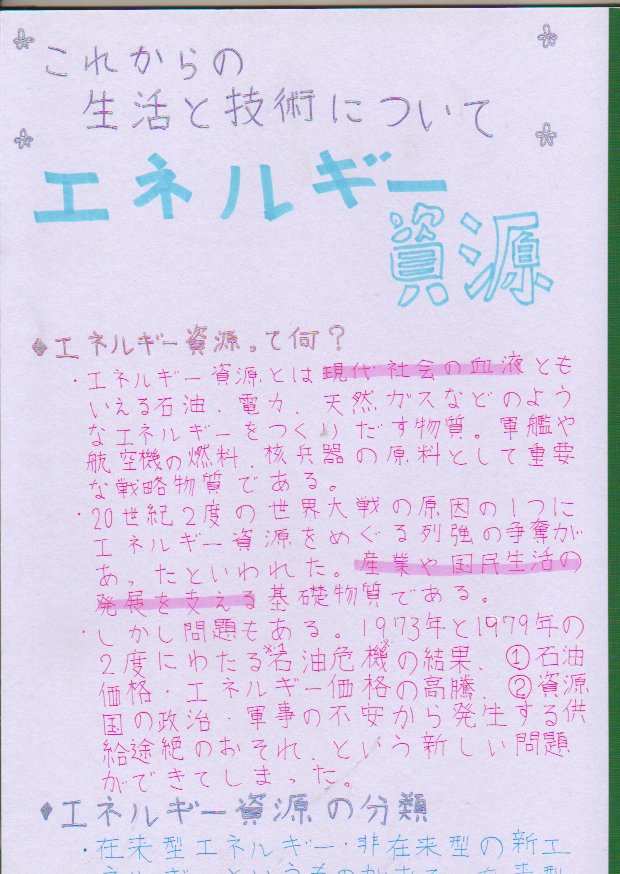 これからの
生活と技術について
エネルギー
資源
◆エネルギー資源って何？
・エネルギー資源とは現代社会の血液とも
いえる石油、電力、天然ガスなどのよう
なエネルギーをつくりだす物質。軍艦や
航空機の燃料、核兵器の原料として重要
な戦略物質である。
・20世紀2度の世界大戦の原因の1つに
エネルギー資源をめぐる列強の争奪が
あったといわれた。産業や国民生活の
発展を支える基礎物質である。
・しかし問題もある。1973年と1979年の
2度にわたる※1石油危機※の結果、①石油
価格・エネルギー価格の高騰、②資源
国の政治・軍事の不安から発生する供
給途絶のおそれ、という新しい問題
ができてしまった。
◆エネルギー資源の分類
・在来型エネルギー・非在来型の新エ